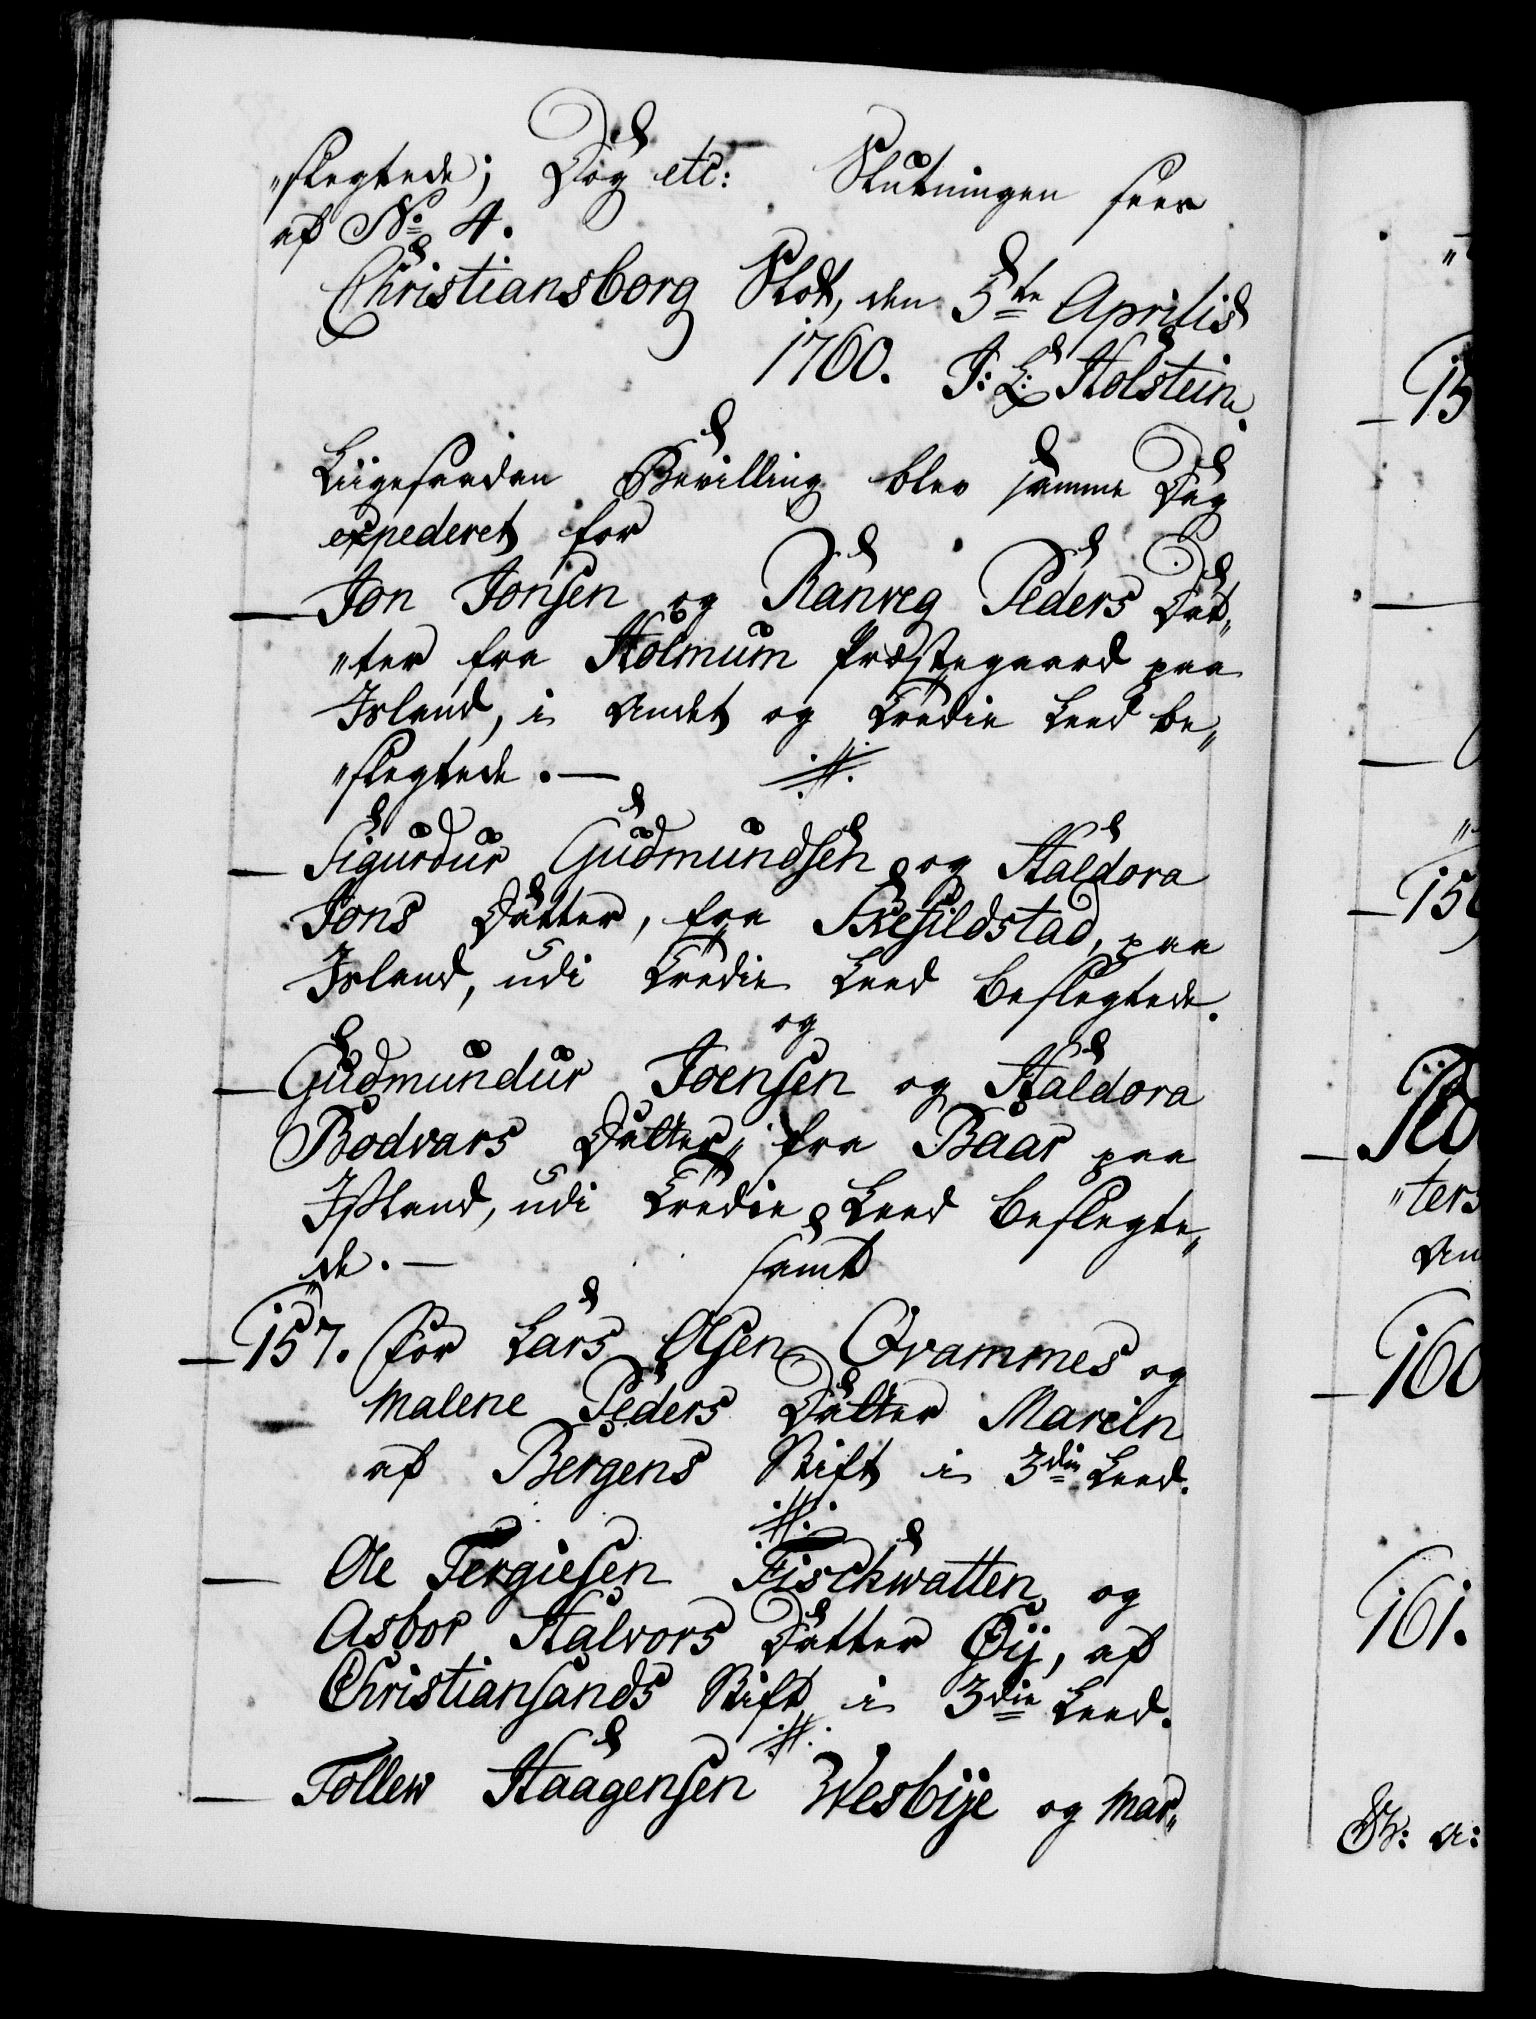 „slegtede; Dog etc: Slutningen sees
af No 4.
Christiansborg Slot, den 5te Aprilis
1760. J: L: Holstein.
Liigesaadan Bevilling blev samme Dag
expederet for
— Jon Jonsen og Ranveg Peders Dat„
„ter fra Holmum Præstegaard paa
Island, i Andet og Tredie Leed be„
„slegtede. —
— Sigurdur Gudmundsen og Haldora
Jons Datter, fra Skesildstad, paa
Island, udi Tredie Leed beslegtede.
og
— Gudmundur Joensen og Haldora
Bodvars Datter, fra Baar paa
Island, udi Tredie Leed beslegte„
„de. — samt
— 157. for Lars Olsen Qvammes og
Malene Peders Datter Mareln
af Bergens Stift i 3die Leed.
— Ole Tergiesen Fischwatten og
Asbor Halvors Datter Øij, af
Christiansands Stift i 3die Leed.
— Tollew Haagensen Wesbije og Mar„
— 15
— 159
— Ped
„ters
An
— 160
161.